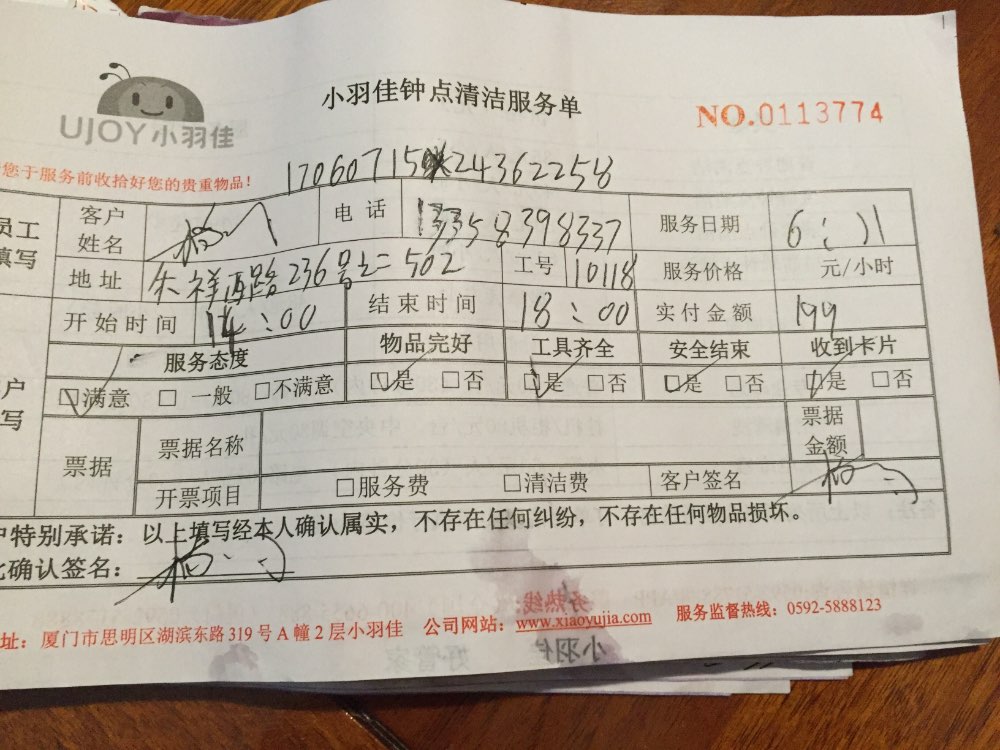 UJOY小羽佳
小羽佳钟点清洁服务单
NO.0113774
您于服务前收拾好您的贵重物品！
员工填写
客户姓名 电话 13358398337 服务日期 6:21
地址 236号 502 工号 10118 服务价格 元/小时
开始时间 14:00 结束时间 18:00 实付金额 199
服务态度 物品完好 工具齐全 安全结束 收到卡片
户写
☑满意 □ 一般 □不满意 ☑是 □否 ☑是 □否 ☑是 □否 ☑是 □否
票据 票据名称 票据金额
开票项目 □服务费 □清洁费 客户签名
户特别承诺：以上填写经本人确认属实，不存在任何纠纷，不存在任何物品损坏。
此确认签名：
址：厦门市思明区湖滨东路319号A幢2层小羽佳 公司网站：www.xiaoyujia.com 服务监督热线：0592-5888123